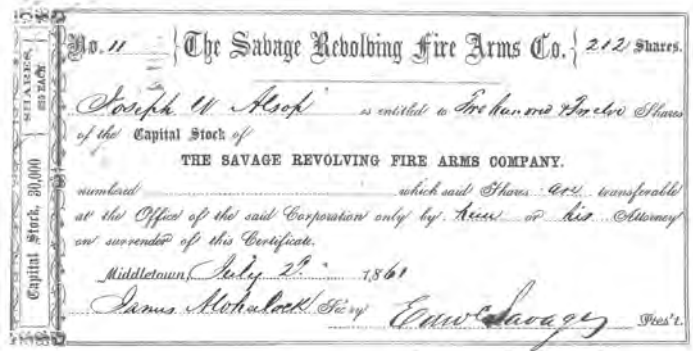 No. 11 The Savage Revolving Fire Arms Co. 212 Shares.
Joseph W Alsop is entitled to Two hundred & Twelve Shares
of the Capital Stock of
THE SAVAGE REVOLVING FIRE ARMS COMPANY.
numbered which said Shares are transferable
at the Office of the said Corporation only by him or his Attorney
on surrender of this Certificate.
Middletown, July 2d 1861
James Sec'ry Edwd Savage Pres't.
Capital Stock, 30,000
SHARES,
EACH